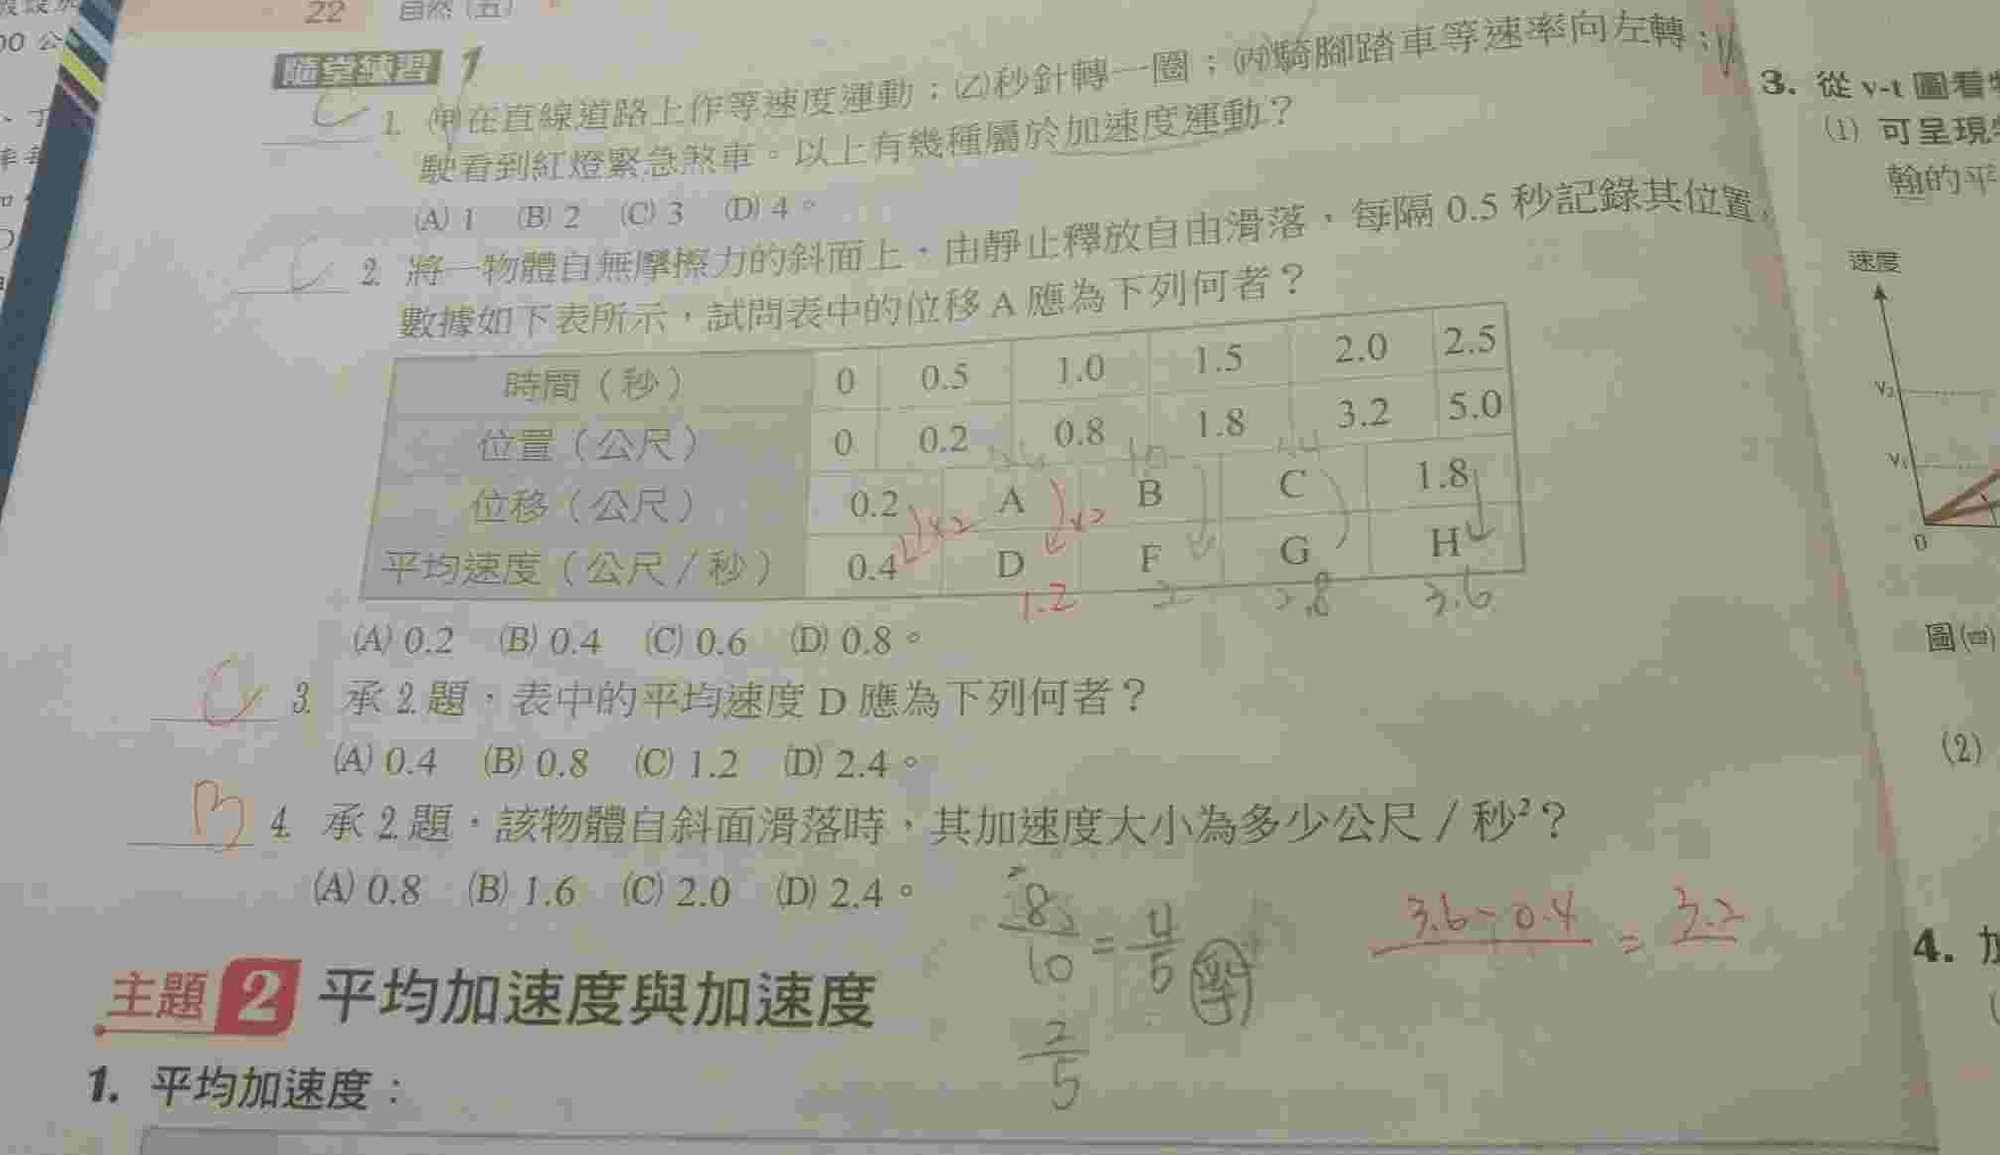 22 自然（五）
隨堂練習 1
C 1. ㈙在直線道路上作等速度運動；㈚秒針轉一圈；㈛騎腳踏車等速率向左轉；
駛看到紅燈緊急煞車。以上有幾種屬於加速度運動？
(A) 1 (B) 2 (C) 3 (D) 4。
C 2. 將一物體自無摩擦力的斜面上，由靜止釋放自由滑落，每隔 0.5 秒記錄其位置，
數據如下表所示，試問表中的位移 A 應為下列何者？
時間（秒） 0 0.5 1.0 1.5 2.0 2.5
位置（公尺） 0 0.2 0.8 1.8 3.2 5.0
位移（公尺） 0.2 A B C 1.8
×2 ×2
平均速度（公尺／秒） 0.4 D F G H
1.2 2 2.8 3.6
(A) 0.2 (B) 0.4 (C) 0.6 (D) 0.8。
C 3. 承 2. 題，表中的平均速度 D 應為下列何者？
(A) 0.4 (B) 0.8 (C) 1.2 (D) 2.4。
B 4. 承 2. 題，該物體自斜面滑落時，其加速度大小為多少公尺／秒²？
(A) 0.8 (B) 1.6 (C) 2.0 (D) 2.4。
8/10 = 4/5
2/5
3.6 - 0.4 = 3.2
主題 2 平均加速度與加速度
1. 平均加速度：
3. 從 v-t 圖看
(1) 可呈現
翰的平
速度
v₂
v₁
0
圖(四)
(2)
4.